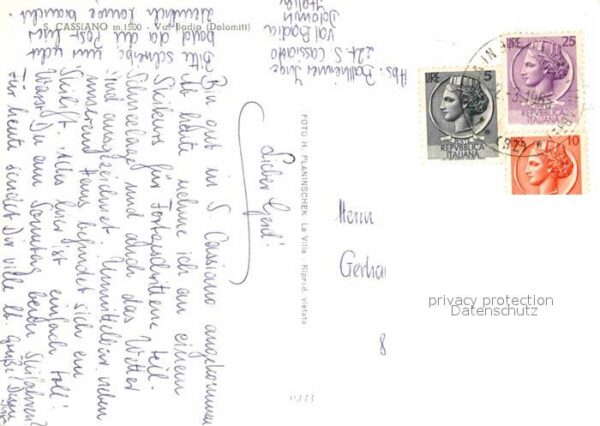 S. CASSIANO m. 1500 - Val Badia (Dolomiti)
Lieber Gerd!
Bin gut in S. Cassiano angekommen.
Ab heute nehme ich an einem
Skikurs für Fortgeschrittene teil.
Schneelage und auch das Wetter
sind ausgezeichnet. Unmittelbar neben
unserem Haus befindet sich ein
Skilift. Alles hier ist einfach toll!
Warst Du am Sonntag beim Skifahren?
Für heute sendet Dir viele lb. Grüße Deine
Inge
Bitte schreibe mir recht
bald da die Post hier
ziemlich lange braucht
Abs.: Inge
S. Cassiano
Val Badia
Dolomiti
Italia
FOTO H. PLANINSCHEK La Villa - Riprod. vietata
Herrn
Gerha
LIRE 5
REPUBBLICA
ITALIANA
LIRE 25
REPUBBLICA
ITALIANA
10
privacy protection
Datenschutz